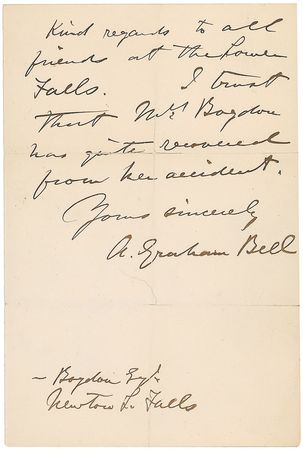 Kind regards to all
friends at the Lower
Falls. I trust
that Mrs Bogdon
has quite recovered
from her accident.
Yours sincerely
A. Graham Bell
— Bogdon Esq.
Newton L. Falls